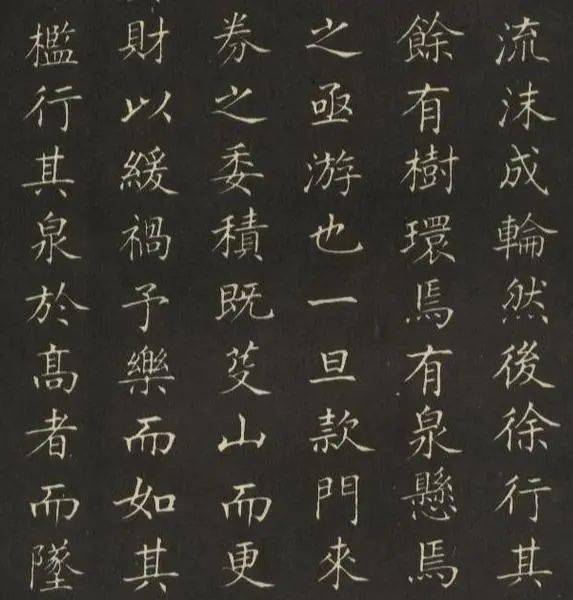 流沫成輪然後徐行其
餘有樹環焉有泉懸焉
之亟游也一旦款門來
券之委積既芟山而更
財以緩禍予樂而如其
檻行其泉於高者而墜